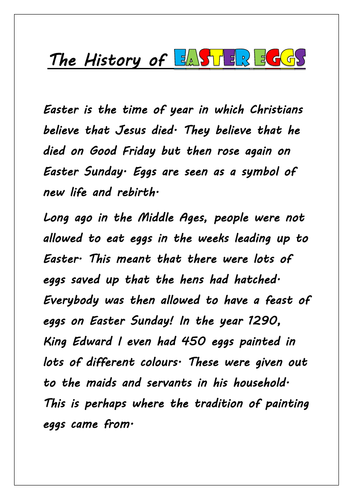 The History of EASTER EGGS
Easter is the time of year in which Christians
believe that Jesus died. They believe that he
died on Good Friday but then rose again on
Easter Sunday. Eggs are seen as a symbol of
new life and rebirth.
Long ago in the Middle Ages, people were not
allowed to eat eggs in the weeks leading up to
Easter. This meant that there were lots of
eggs saved up that the hens had hatched.
Everybody was then allowed to have a feast of
eggs on Easter Sunday! In the year 1290,
King Edward I even had 450 eggs painted in
lots of different colours. These were given out
to the maids and servants in his household.
This is perhaps where the tradition of painting
eggs came from.